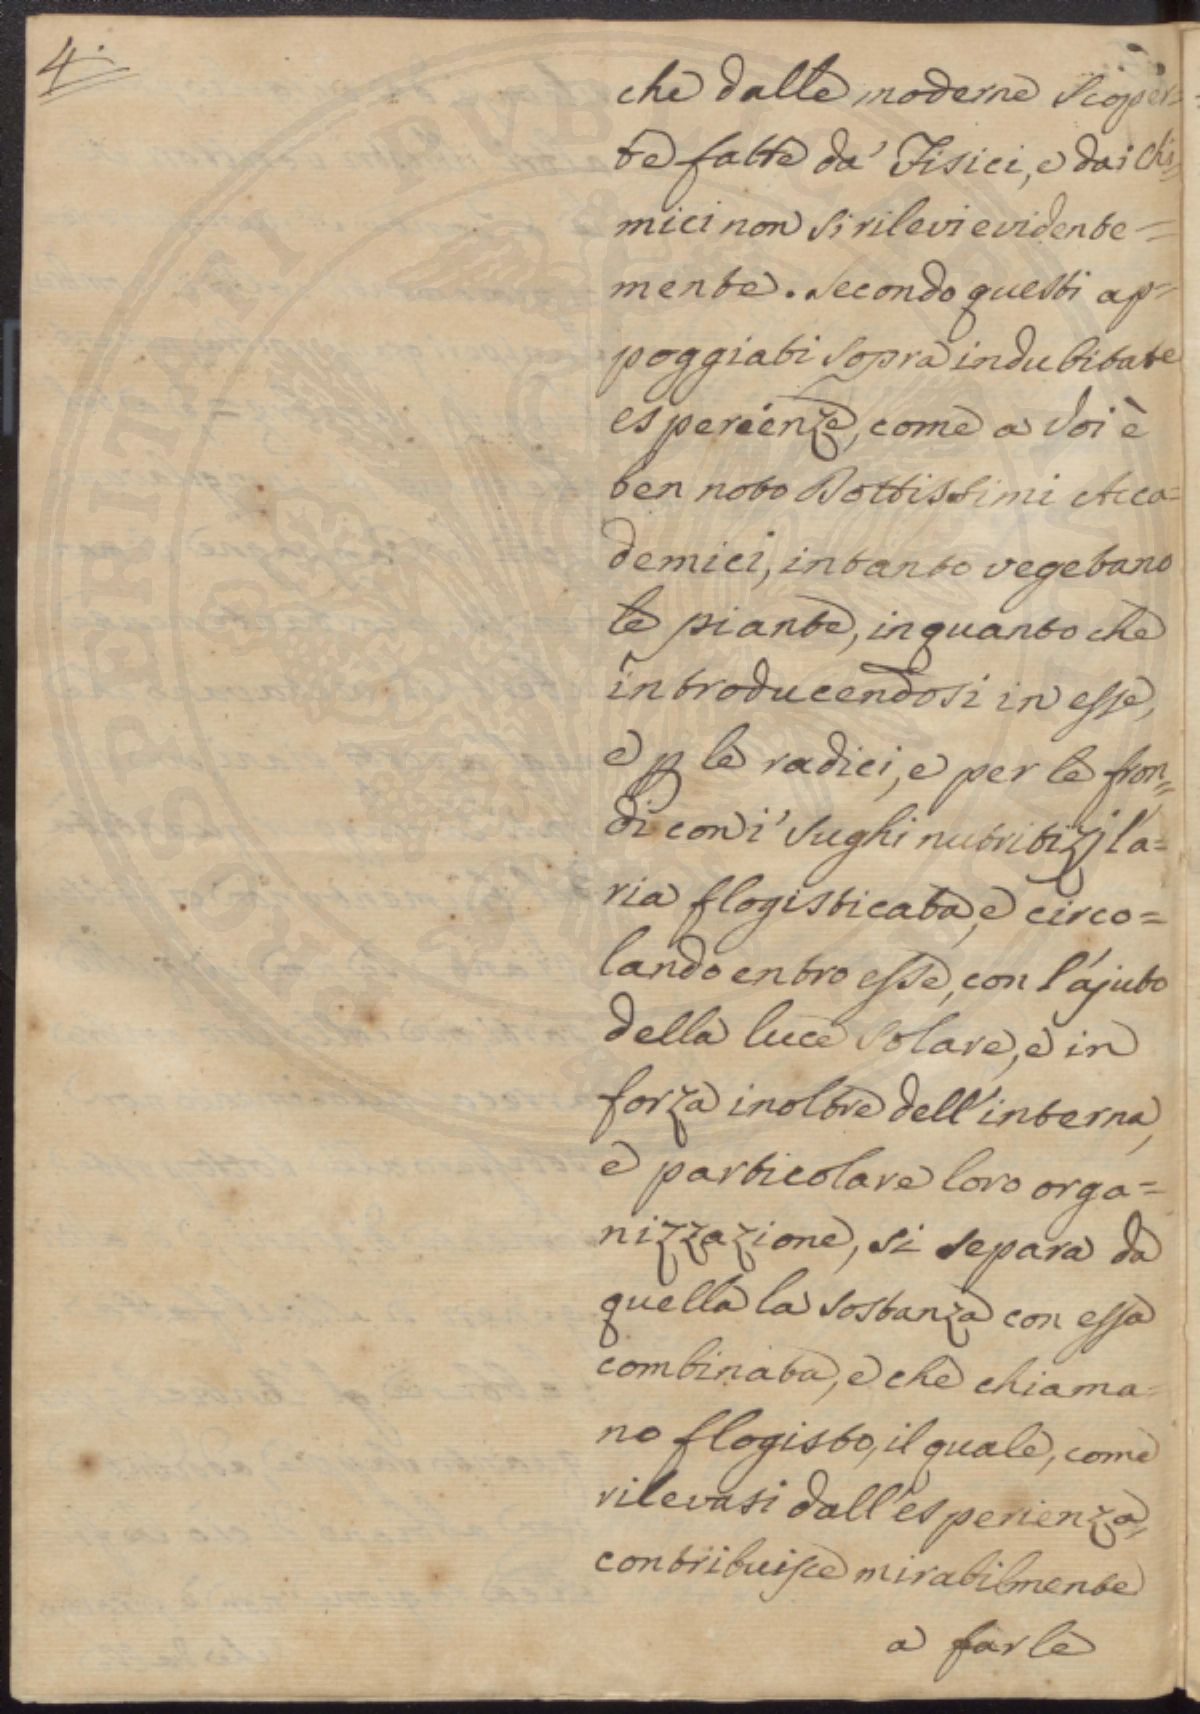 4.
che dalle moderne scoper=
te fatte da' Fisici, e dai Chi=
mici non si rilevi evidente=
mente. Secondo questi ap=
poggiati sopra indubitate
esperienze, come a Voi è
ben noto Dottissimi Acca=
demici, intanto vegetano
le piante, inquanto che
introducendosi in esse,
e p le radici, e per le fron=
di con i' sughi nutritizj l'a=
ria flogisticata, e circo=
lando entro esse, con l'ajuto
della luce solare, e in
forza inoltre dell'interna,
e particolare loro orga=
nizzazione, si separa da
quella la sostanza con essa
combinata, e che chiama=
no flogisto, il quale, come
rilevasi dall'esperienza,
contribuisce mirabilmente
a farle